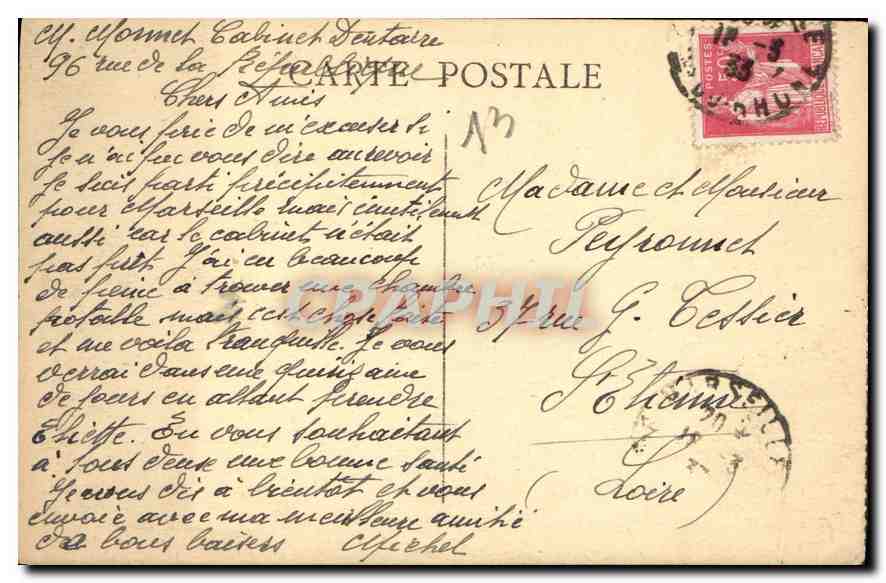 M. Monnet Cabinet Dentaire
96 rue de la République
CARTE POSTALE
Chers Amis
Je vous prie de m'excuser si
je n'ai pu vous dire aurevoir
je suis parti précipitemment
pour Marseille mais inutilement
aussi car le cabinet n'était
pas prêt. J'ai eu beaucoup
de peine à trouver une chambre
potable mais c'est chose faite
et me voila tranquille. Je vous
verrai dans une quinzaine
de jours en allant prendre
Eliette. En vous souhaitant
à tous deux une bonne santé
Je vous dis à bientôt et vous
envoie avec ma meilleure amitié
de bons baisers Michel
13
Madame et Monsieur
Peyronnet
37 rue G. Tessier
St Etienne
(Loire)
POSTES
50c
MARSEILLE
CPAPHTI